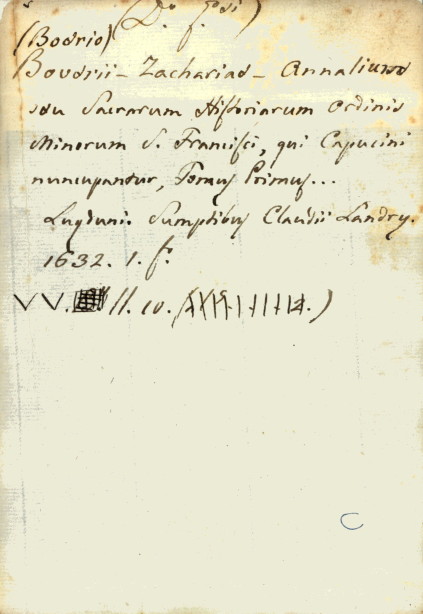 (Bodrio)
Boverii - Zacharias - Annalium
seu Sacrarum Historiarum Ordinis
Minorum S. Francisci, qui Capucini
nuncupantur, Tomus Primus...
Lugduni. Sumptibus Claudii Landry.
1632. 1. f.
VV. 11. 10.
C